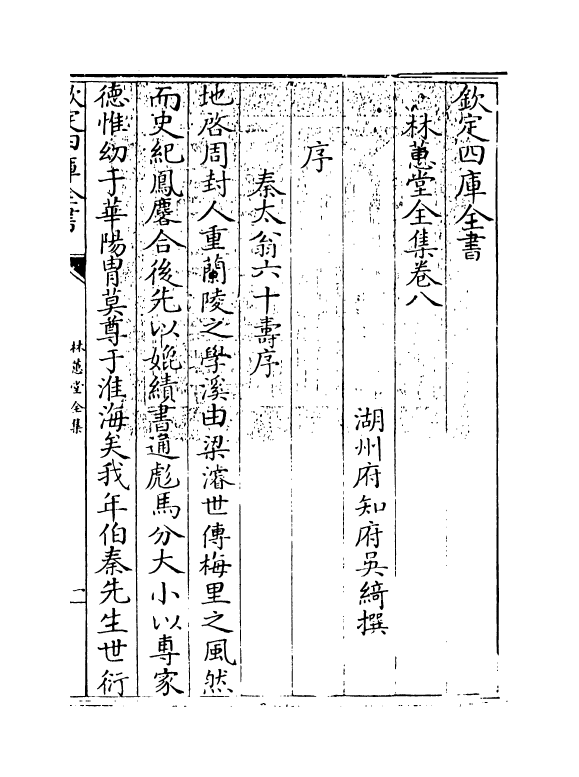 欽定四庫全書
林蕙堂全集卷八
湖州府知府吳綺撰
序
秦太翁六十壽序
地啓周封人重蘭陵之學溪由梁濬世傳梅里之風然
而史紀鳳麐合後先以媲績書通彪馬分大小以專家
德惟幼于華陽胄莫尊于淮海矣我年伯秦先生世衍
欽定四庫全書
林蕙堂全集